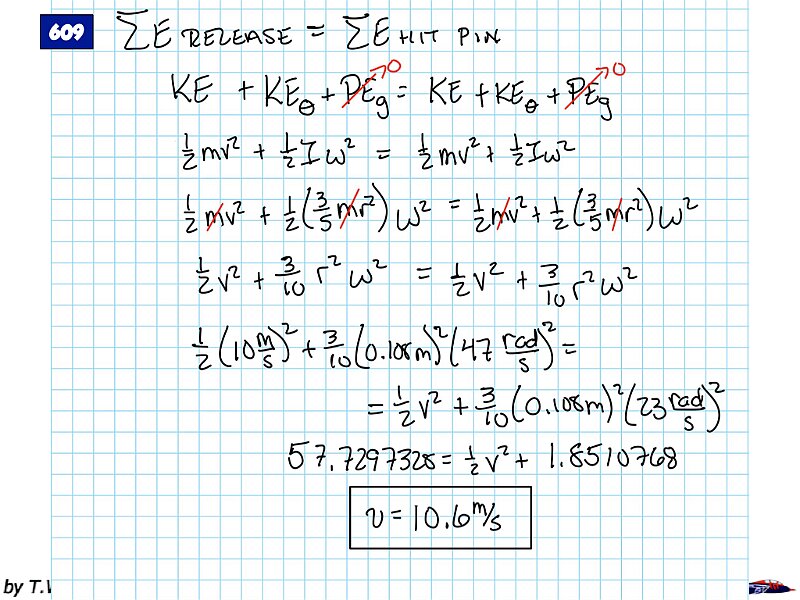 609
ΣE RELEASE = ΣE HIT PIN
KE + KEθ + PEg→0 = KE + KEθ + PEg→0
½mv² + ½Iω² = ½mv² + ½Iω²
½mv² + ½(3/5 mr²)ω² = ½mv² + ½(3/5 mr²)ω²
½v² + 3/10 r²ω² = ½v² + 3/10 r²ω²
½(10 m/s)² + 3/10(0.108m)²(47 rad/s)² =
= ½v² + 3/10(0.108m)²(23 rad/s)²
57.7297328 = ½v² + 1.8510768
v = 10.6 m/s
by T.